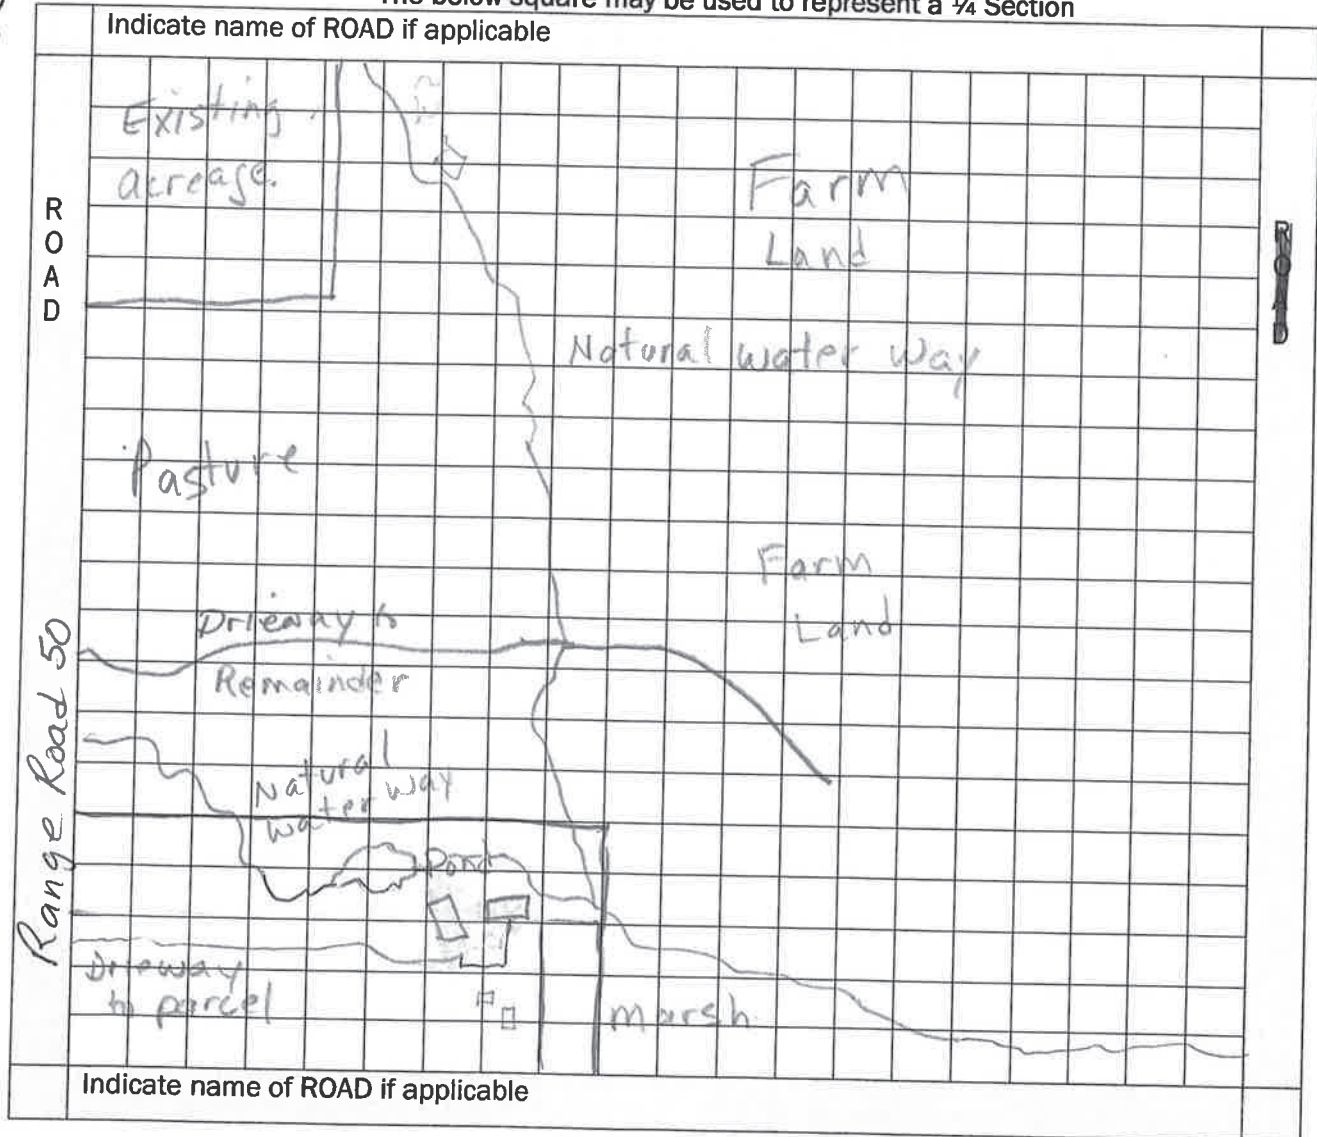 The below square may be used to represent a ¼ Section
Indicate name of ROAD if applicable
Existing
acreage.
Farm
Land
ROAD
ROAD
Natural water way
Pasture
Farm
Land
Drieway to
Remainder
Range Road 50
Natural
water way
Pond
Drieway
to parcel
marsh
Indicate name of ROAD if applicable